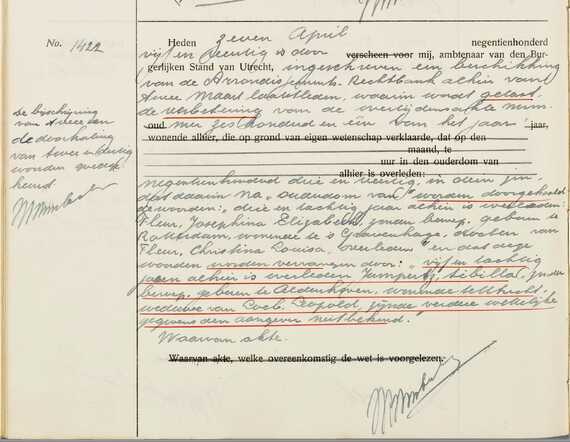 No. 1422
Heden zeven April negentienhonderd
vijf en veertig is door verscheen voor mij, ambtenaar van den Bur-
gerlijken Stand van Utrecht, ingeschreven een beschikking
van de Arrondissements Rechtbank alhier van
twee Maart laatstleden, waarin wordt gelast
de verbetering van de overlijdensakte num-
oud mer zeshonderd en één van het jaar jaar,
wonende alhier, die op grond van eigen wetenschap verklaarde, dat op den
maand, te
uur in den ouderdom van
alhier is overleden:
negentienhonderd drie en veertig, in dien zin,
dat daarin na "ouderdom van" worden doorgehaald
de woorden: "drie en tachtig jaar alhier is overleden:
Fleur, Josephina Elizabeth, zonder beroep, geboren te
Rotterdam, wonende te 's Gravenhage, dochter van
Fleur, Christina Louisa, overleden" en dat deze
woorden worden vervangen door: "vijf en tachtig
jaren alhier is overleden Sibilla, zonder
beroep, geboren te Aldenhoven, wonende te Uttrecht,
weduwe van Leopold, zijnde verdere wettelijke
gegevens den aangever niet bekend."
Waarvan akte.
Waarvan akte, welke overeenkomstig de wet is voorgelezen.
De bijschrijving
van twee en
de doorhaling
van twee en dertig
woorden goedge-
keurd